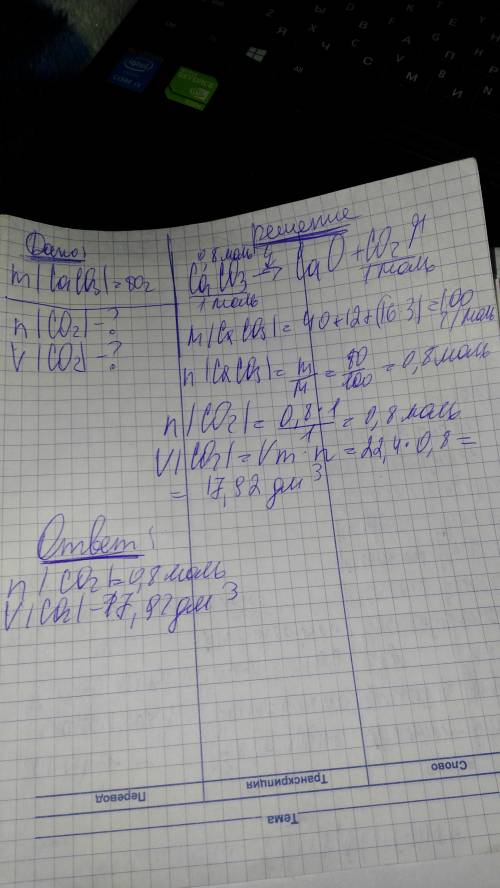 Дано:
m|CaCO3|=80г
n|CO2|-?
V|CO2|-?
решение
0,8 моль
CaCO3 → CaO + CO2↑
1 моль 1 моль
M|CaCO3|=40+12+(16·3)=100 г/моль
n|CaCO3|= m/M = 80/100 = 0,8 моль
n|CO2|= 0,8·1/1 = 0,8 моль
V|CO2|= Vm·n = 22,4·0,8=
= 17,92 дм3
Ответ:
n|CO2|=0,8 моль
V|CO2|-17,92 дм3
Перевод Транскрипция Слово
Тема
intel
CORE i3
GEFORCE